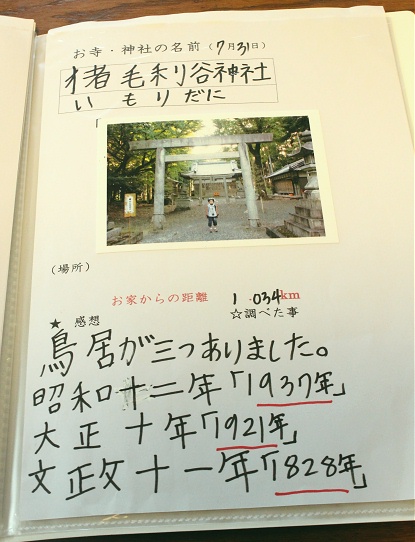 お寺・神社の名前(7月31日)
猪毛利谷神社
いもりだに
(場所)
お家からの距離 1.034km
★ 感想 ☆調べた事
鳥居が三つありました。
昭和十二年「1937年」
大正十年「1921年」
文政十一年「1828年」